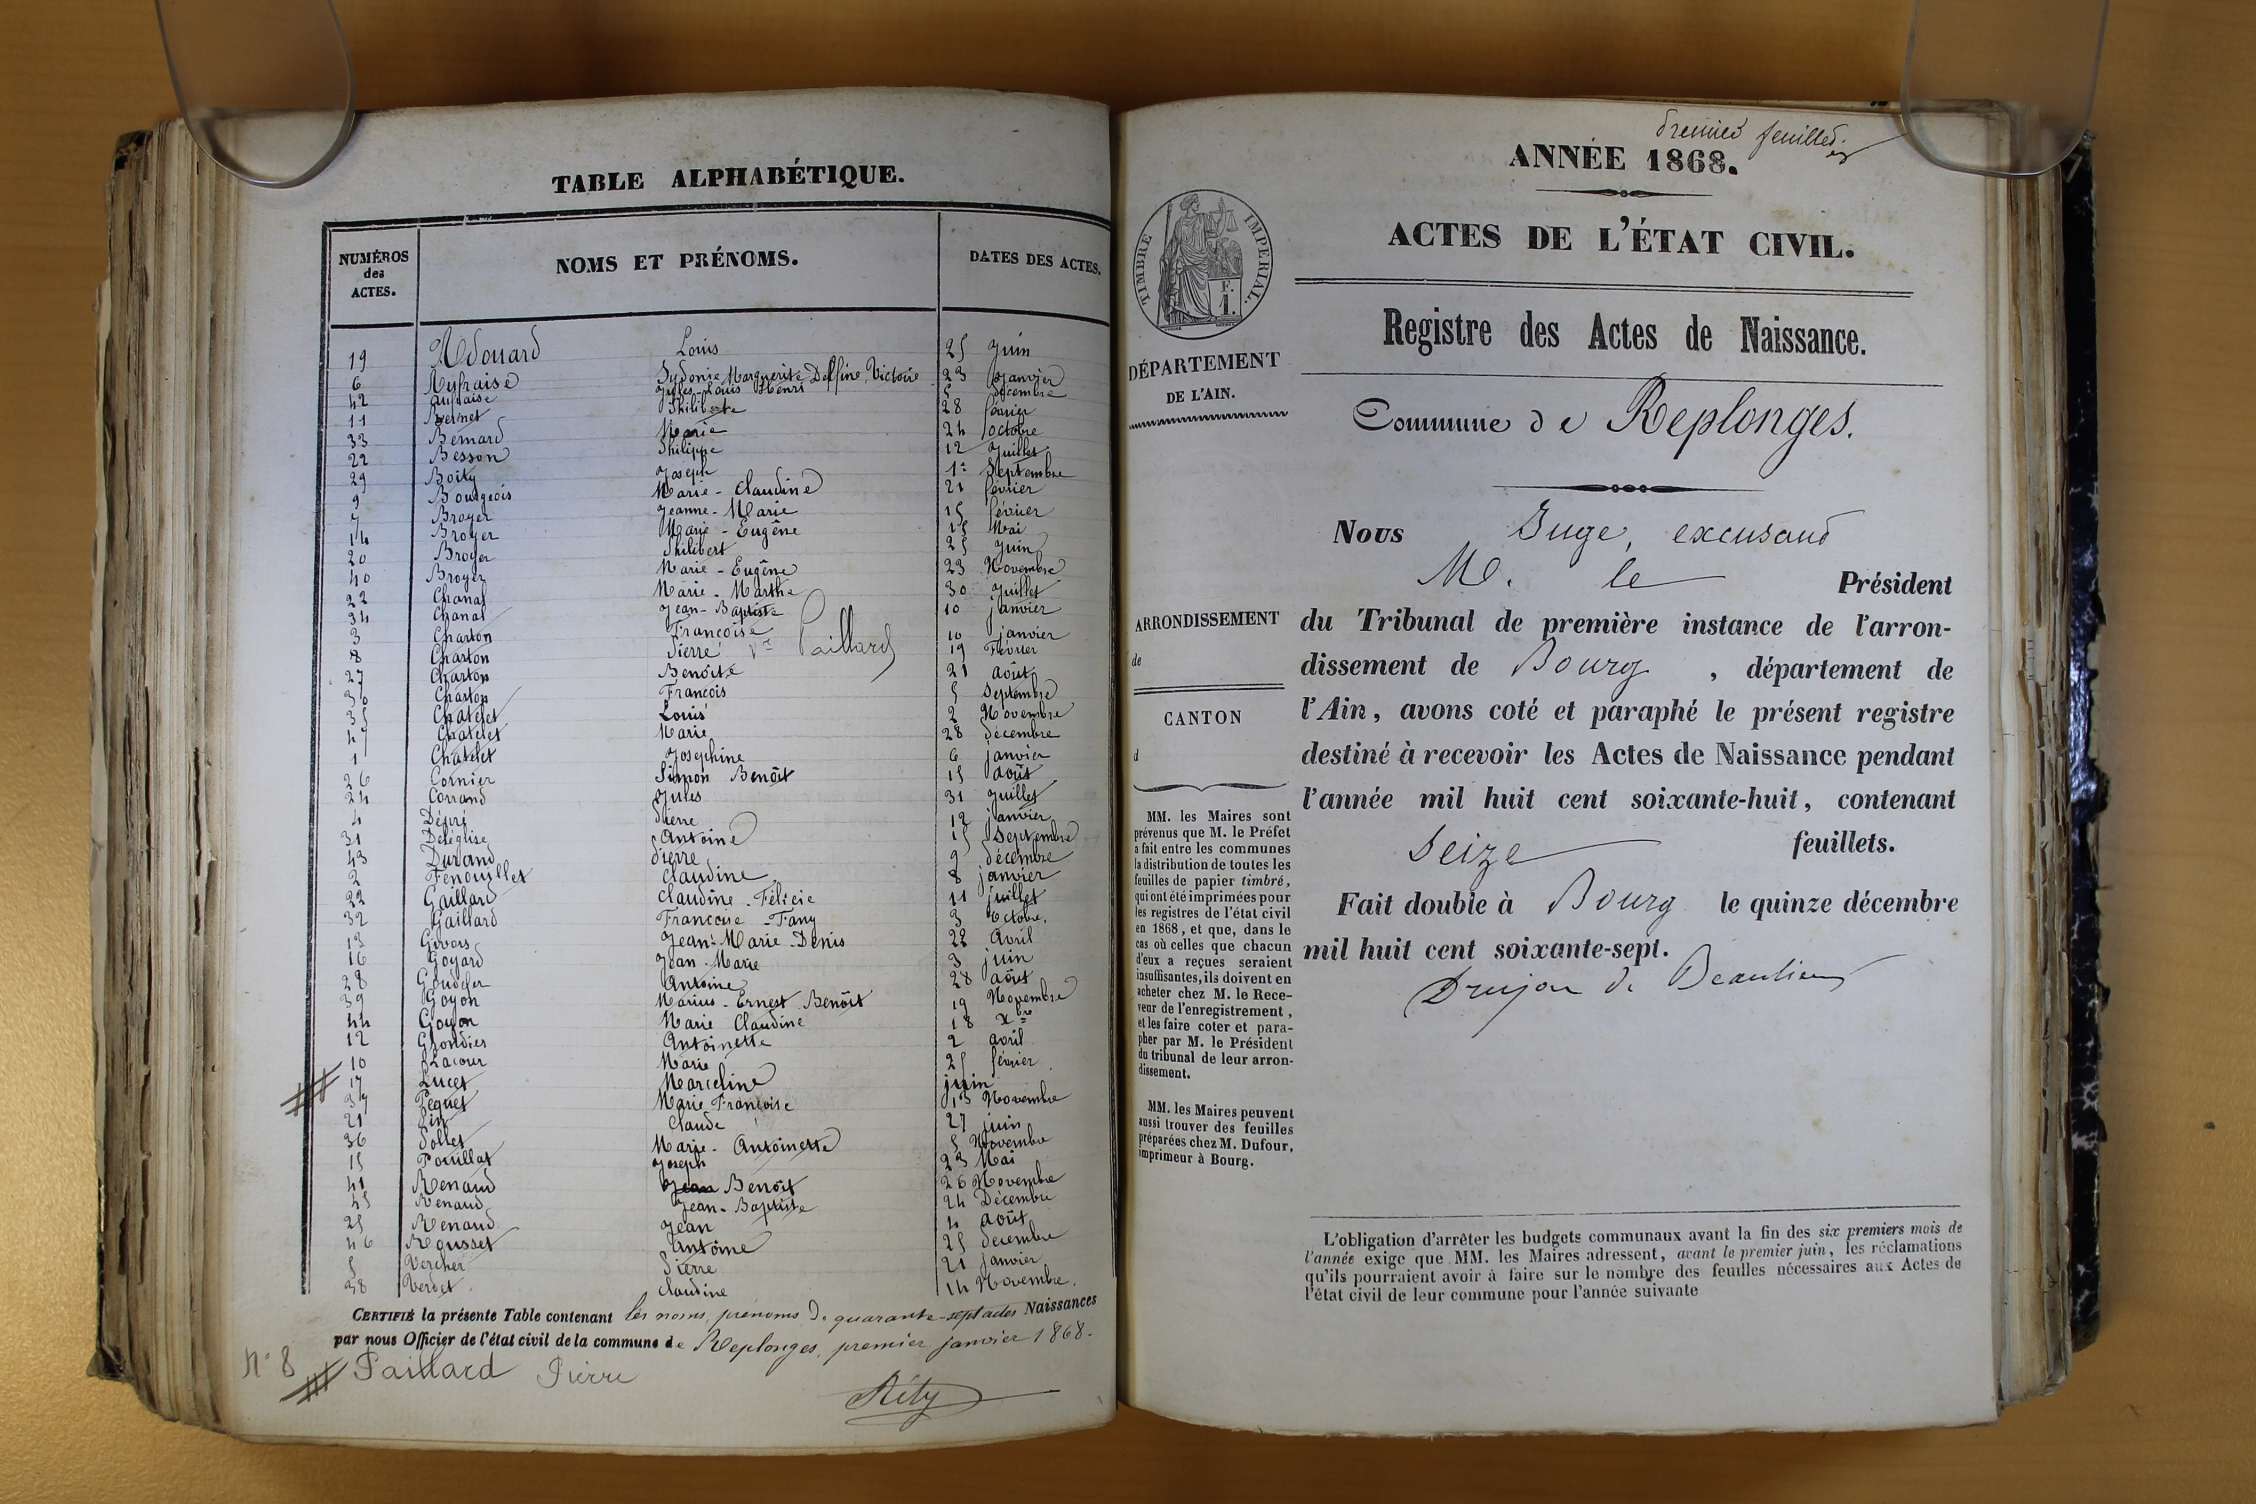 TABLE ALPHABÉTIQUE.
NUMÉROS des ACTES.
NOMS ET PRÉNOMS.
DATES DES ACTES.
19 Louis 25 Juin
6 Aufraise Sydonie Marguerite Delfine Victoire 23 Janvier
42 Aufraise Jules-Louis Henri 5 décembre
11 Bernet Philiberte 28 février
33 Bernard Marie 24 octobre
22 Besson Philippe 12 Juillet
29 Boity Joseph 1er Septembre
9 Bourgeois Marie-Claudine 21 février
7 Broyer Jeanne-Marie 15 février
14 Broyer Marie-Eugène 15 Mai
20 Broyer Philibert 25 Juin
40 Broyer Marie-Eugène 23 Novembre
22 Chanal Marie-Marthe 30 Juillet
34 Chanal Jean-Baptiste 10 janvier
3 Charton Françoise 10 janvier
8 Charton Pierre Vir Paillard 19 Février
27 Charton Benoîte 21 août
30 Charton François 5 Septembre
35 Chatelet Louis 2 Novembre
47 Chatelet Marie 28 décembre
1 Chatelet Josephine 6 janvier
26 Cornier Simon Benoît 15 août
24 Corrand Jules 31 Juillet
4 Dépri Pierre 12 janvier
31 Deléglise Antoine 15 Septembre
43 Durand Pierre 9 décembre
2 Fenouillet Claudine 8 janvier
22 Gaillard Claudine-Félicie 11 juillet
32 Gaillard Françoise-Fany 3 Octobre.
13 Givors Jean-Marie-Denis 22 Avril
16 Goyard Jean-Marie 3 juin
28 Antoine 28 août
39 Goyon Marius-Ernest-Benoît 19 Novembre
44 Goyon Marie Claudine 18 Xbre
12 Grondier Antoinette 2 avril
10 Lacour Marie 25 février
17 Lucet Marceline juin
37 Pequet Marie Françoise 13 Novembre
21 Pin Claude 27 juin
36 Pollet Marie-Antoinette 5 Novembre
15 Pouillat Joseph 23 Mai
41 Renaud Jean Benoît 26 Novembre
45 Renaud Jean-Baptiste 24 Décembre
25 Renaud Jean 4 août
46 Rousset Antoine 25 décembre
5 Vercher Pierre 21 janvier
38 Verdet Claudine 14 Novembre.
CERTIFIÉ la présente Table contenant les noms, prénoms de quarante-sept actes Naissances
par nous Officier de l'état civil de la commune de Replonges, premier janvier 1868.
N° 8 Paillard Pierre
Réty
premier feuillet.
ANNÉE 1868.
ACTES DE L'ÉTAT CIVIL.
TIMBRE IMPÉRIAL.
F.
1.
Registre des Actes de Naissance.
DÉPARTEMENT
DE L'AIN.
Commune de Replonges.
Nous Juge, excusant
M. le Président
ARRONDISSEMENT
de
CANTON
d
du Tribunal de première instance de l'arron-
dissement de Bourg, département de
l'Ain, avons coté et paraphé le présent registre
destiné à recevoir les Actes de Naissance pendant
l'année mil huit cent soixante-huit, contenant
Seize feuillets.
Fait double à Bourg le quinze décembre
mil huit cent soixante-sept.
Drujon de Beaulieu
MM. les Maires sont
prévenus que M. le Préfet
a fait entre les communes
la distribution de toutes les
feuilles de papier timbré,
qui ont été imprimées pour
les registres de l'état civil
en 1868, et que, dans le
cas où celles que chacun
d'eux a reçues seraient
insuffisantes, ils doivent en
acheter chez M. le Rece-
veur de l'enregistrement,
et les faire coter et para-
pher par M. le Président
du tribunal de leur arron-
dissement.
MM. les Maires peuvent
aussi trouver des feuilles
préparées chez M. Dufour,
imprimeur à Bourg.
L'obligation d'arrêter les budgets communaux avant la fin des six premiers mois de
l'année exige que MM. les Maires adressent, avant le premier juin, les réclamations
qu'ils pourraient avoir à faire sur le nombre des feuilles nécessaires aux Actes de
l'état civil de leur commune pour l'année suivante